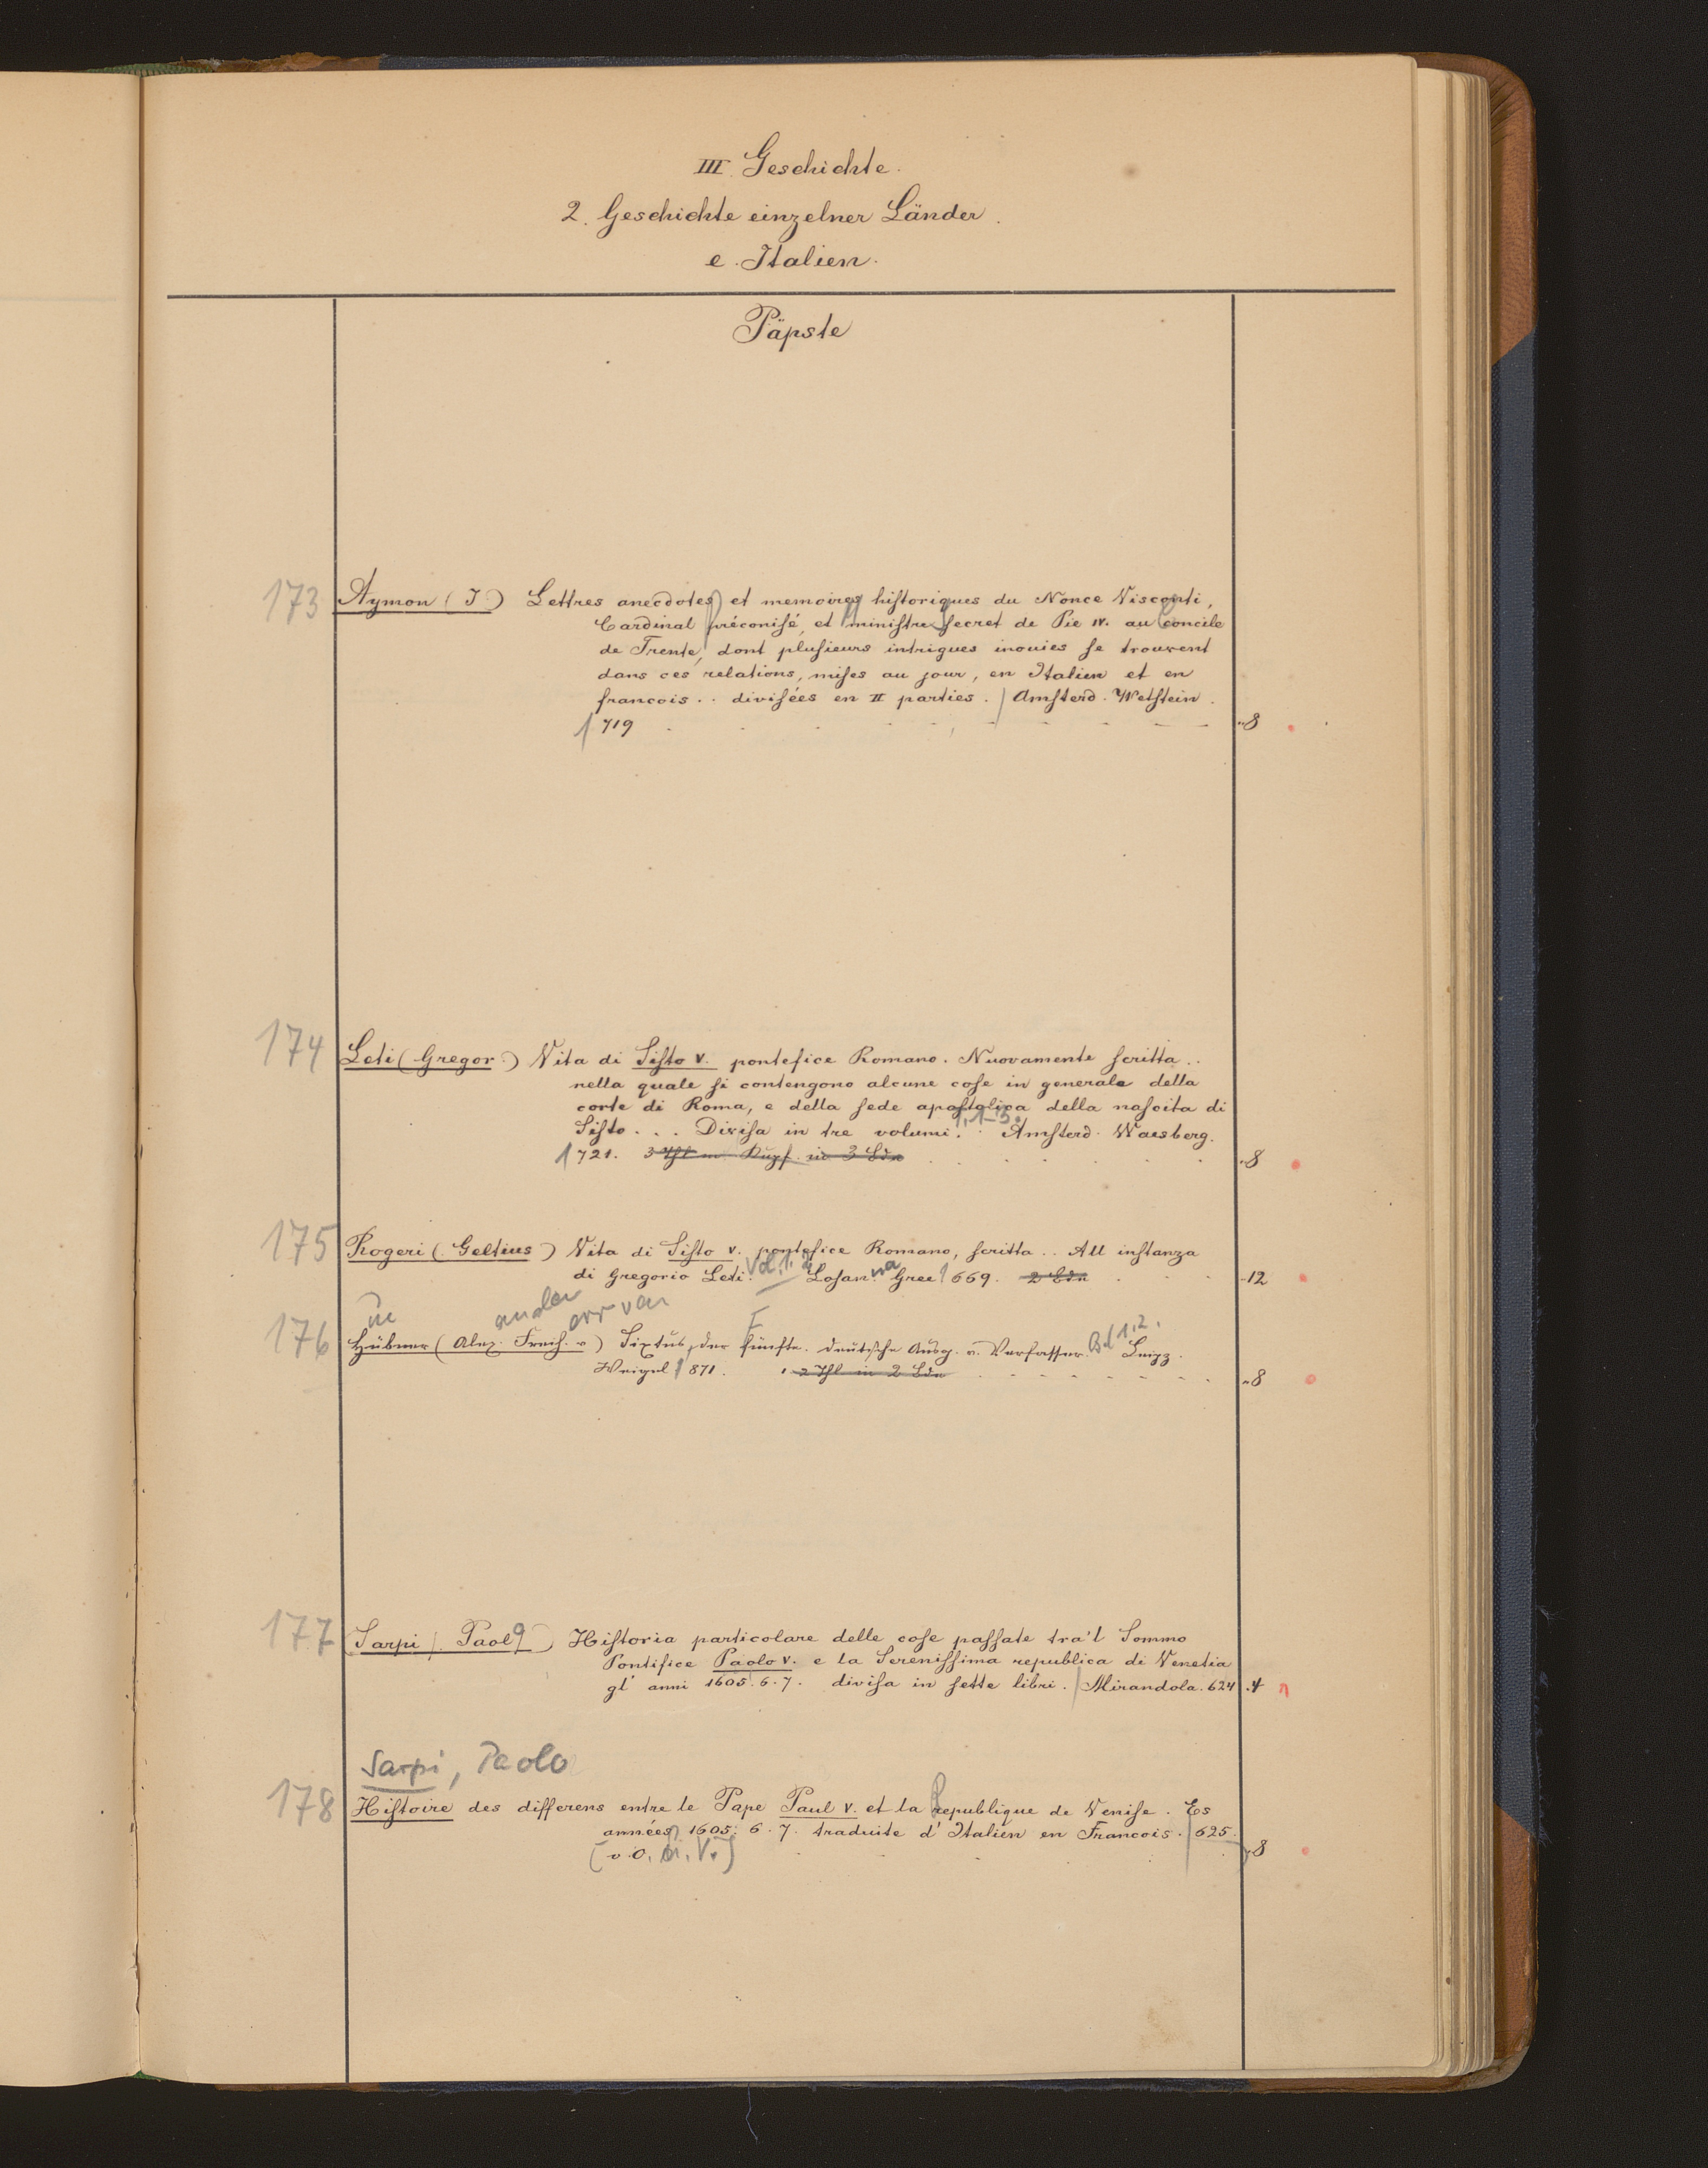 III. Geschichte.
2. Geschichte einzelner Länder.
e. Italien.
Päpste
173 Aymon (J.) Lettres anecdotes et memoires historiques du Nonce Visconti,
Cardinal préconisé, et ministre secret de Pie IV. au concile
de Trente, dont plusieurs intrigues inouies se trouvent
dans ces relations, mises au jour, en Italien et en
francois .. divisées en II parties. Amsterd. Wetstein.
1719 "8
174 Leti (Gregor.) Vita di Sisto V. pontefice Romano. Nuovamente scritta ..
nella quale si contengono alcune cose in generale della
corte di Roma, e della sede apostolica della nascita di
1.1-3.
Sisto ... Divisa in tre volumi. Amsterd. Waesberg.
1721. 3 Thl m. Kupf. in 3 Bdn "8
175 Rogeri (Geltius) Vita di Sisto V. pontefice Romano, scritta .. All instanza
di Gregorio Leti. Vol. 1. 2 Losanna Gree 1669. 2 Bdn "12
ue
176 Hübner (Alex. Freih. v) Sixtus, der fünfte. Deutsche Ausg. v. Verfasser. Bd 1.2. Leipz.
Weigel 1871. 2 Thl in 2 Bdn "8
177 Sarpi, Paolo Historia particolare delle cose passate tra'l Sommo
Pontifice Paolo V. e la Serenissima republica di Venetia
gl' anni 1605. 6. 7. divisa in sette libri. Mirandola. 624 "4
Sarpi, Paolo
178 Histoire des differens entre le Pape Paul V. et la Republique de Venise. Es
années 1605. 6. 7. traduite d' Italien en Francois. 625.
(o. O. u. V.) "8